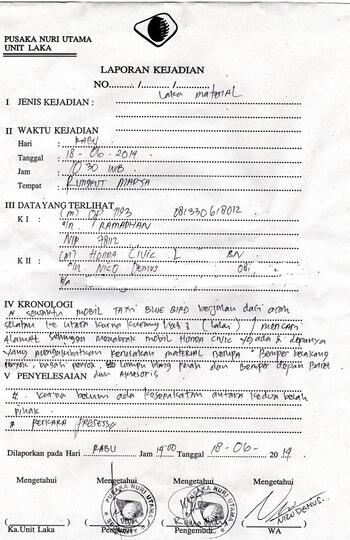 PUSAKA NURI UTAMA
UNIT LAKA
LAPORAN KEJADIAN
NO....... /........../...........
I JENIS KEJADIAN : Laka Material
II WAKTU KEJADIAN
Hari : RABU
Tanggal : 18 - 06 - 2014
Jam : 10 30 WIB
Tempat : RUNGKUT MADYA
III DATA YANG TERLIHAT
K I : (M) 081330618012
a/n. RAMADHAN
NIP
K II : (M) HONDA CIVIC L BN
a/n. NICO Demus 081
IV KRONOLOGI
sewaktu MOBIL TAXI BLUE BIRD berjalan dari arah
selatan ke utara karna kurang (lalai) / MENCARI
Alamat sehingga menabrak mobil Honda Civic yg ada di depanya
yang mengakibatkan kerusakan MATERIAL Berupa Bemper belakang
Penyok, bagasi penyok, lampu blkng pecah dan Bemper depan
dan Aksesoris
V PENYELESAIAN
karna belum ada kesepakatan antara kedua belah
pihak
PERKARA
Dilaporkan pada Hari RABU Jam 14.00 Tanggal 18 - 06 - 2014
Mengetahui Mengetahui Mengetahui Mengetahui
PUSAKA NURI UTAMA
NICODEMUS.
Ka.Unit Laka Pengurus Pengemudi WA